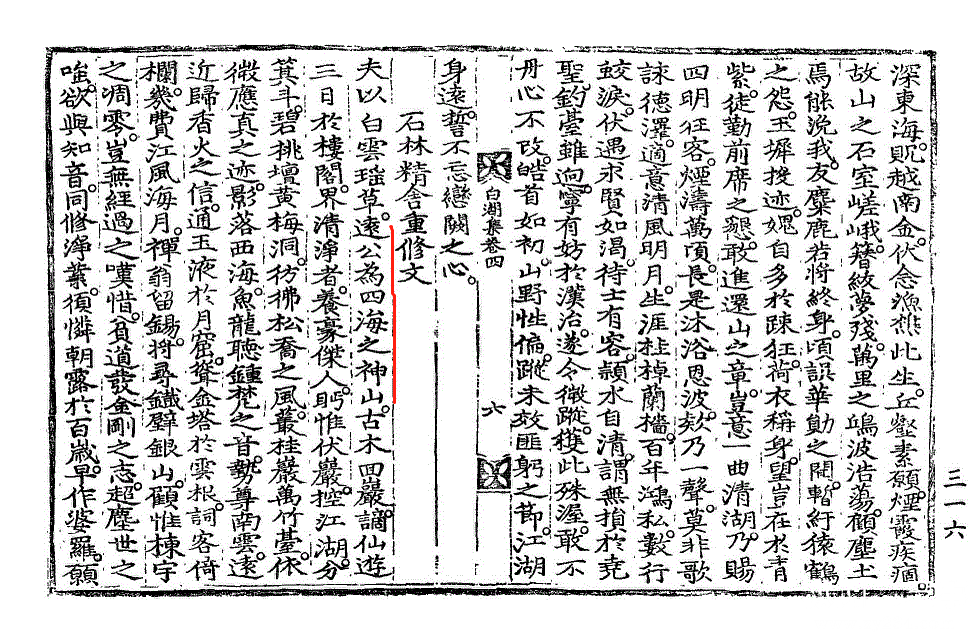 深東海。貺越南金。伏念漁樵此生。丘壑素願。煙霞疾痼。
故山之石室嵯峨。簪紱夢殘。萬里之鴟波浩蕩。顧塵土
焉能浼我。友麋鹿若將終身。頃誤華勛之聞。暫紆猿鶴
之怨。玉墀挽迹。媿自多於踈狂。荷衣稱身。望豈在於青
紫。徒勤前席之懇。敢進還山之章。豈意一曲清湖。乃賜
四明狂客。煙濤萬頃。長是沐浴恩波。欸乃一聲。莫非歌
詠德澤。適意清風明月。生涯桂棹蘭檣。百年鴻私。數行
鮫淚。伏遇求賢如渴。待士有容。潁水自清。謂無損於堯
聖。釣臺雖逈。寧有妨於漢治。遂令微蹤。獲此殊渥。敢不
丹心不改。皓首如初。山野性偏。蹤未效匪躬之節。江湖
身遠。誓不忘戀闕之心。
白湖集卷四
六
石林精舍重修文
夫以白雲瑤草。遠公為四海之神山。古木回巖。謫仙遊
三日於樓閣。界清淨者。養豪傑人。眄惟伏巖。控江湖。分
箕斗。碧桃壇黃梅洞。彷彿松喬之風。叢桂巖萬竹臺。依
微應真之迹。影落西海。魚龍聽鍾梵之音。勢尊南雲。遠
近歸香火之信。通玉液於月窟。聳金塔於雲根。詞客倚
欄。幾費江風海月。禪翁留錫。將尋鐵壁銀山。顧惟棟宇
之凋零。豈無經過之嘆惜。貧道發金剛之志。超塵世之
唯。欲與知音。同修淨業。須憐朝露於百歲。早作婆羅願
三一六